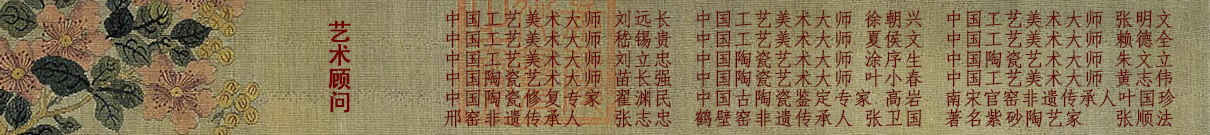 艺术顾问
中国工艺美术大师 刘远长 中国工艺美术大师 徐朝兴 中国工艺美术大师 张明文
中国工艺美术大师 嵇锡贵 中国工艺美术大师 夏侯文 中国工艺美术大师 赖德全
中国工艺美术大师 刘立忠 中国陶瓷艺术大师 涂序生 中国陶瓷艺术大师 朱文立
中国陶瓷艺术大师 苗长强 中国陶瓷艺术大师 叶小春 中国工艺美术大师 黄志伟
中国陶瓷修复专家 翟渊民 中国古陶瓷鉴定专家 高岩 南宋官窑非遗传承人叶国珍
邢窑非遗传承人 张志忠 鹤壁窑非遗传承人 张卫国 著名紫砂陶艺家 张顺法